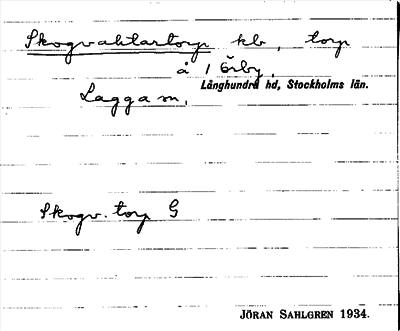 Skogvaktartorp kb, torp
å 1 Örby,
Långhundra hd, Stockholms län.
Lagga sn,
Skogv. torp G
JÖRAN SAHLGREN 1934.